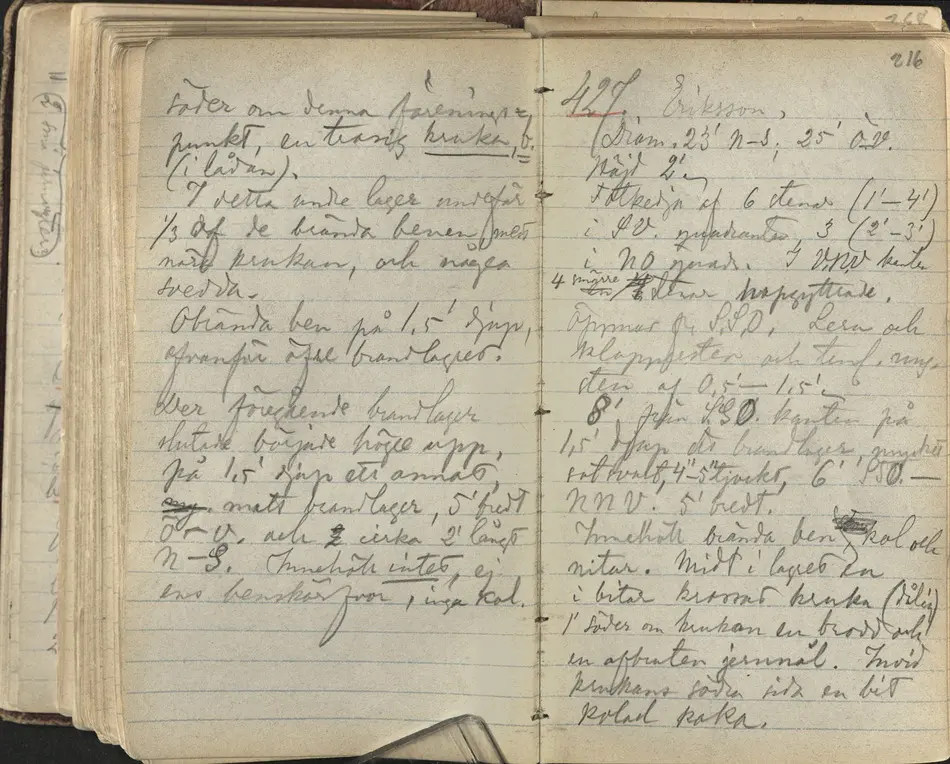 söder om denna förenings=
punkt, en trasig kruka, b.
(i lådan).
I detta undre lager ungefär
1/3 af de brända benen, mest
nära krukan, och några
svedda.
Obrända ben på 1,5' djup,
ofvanför öfre brandlagret.
Der föregående brandlager
slutade började högre upp,
på 1,5' djup ett annat,
matt brandlager, 5' bredt
Ö–V. och cirka 2' långt
N–S. Innehöll intet, ej
ens benskärfvor, inga kol.
216
427. Eriksson.
Diam. 23' N–S; 25' Ö–V.
Höjd 2'.
Fotkedja af 6 stenar (1'–4')
i SV. quadranten, 3 (2'–3')
i NO quadr. I VNV kanten
4 smärre stenar hopgyttrade.
Öppnas fr. S.SO. Lera och
klappersten och
sten af 0,5'–1,5'.
8' från SSO. kanten på
1,5' djup ett brandlager, mycket
sotsvart, 4"–5" tjockt, 6' SSO.–
NNV. 5' bredt.
Innehöll brända ben, kol och
nitar. Midt i lagret en
i bitar krossad kruka
1' söder om krukan en brodd och
en afbruten jernnål. Invid
krukans södra sida en bit
kolad kaka.